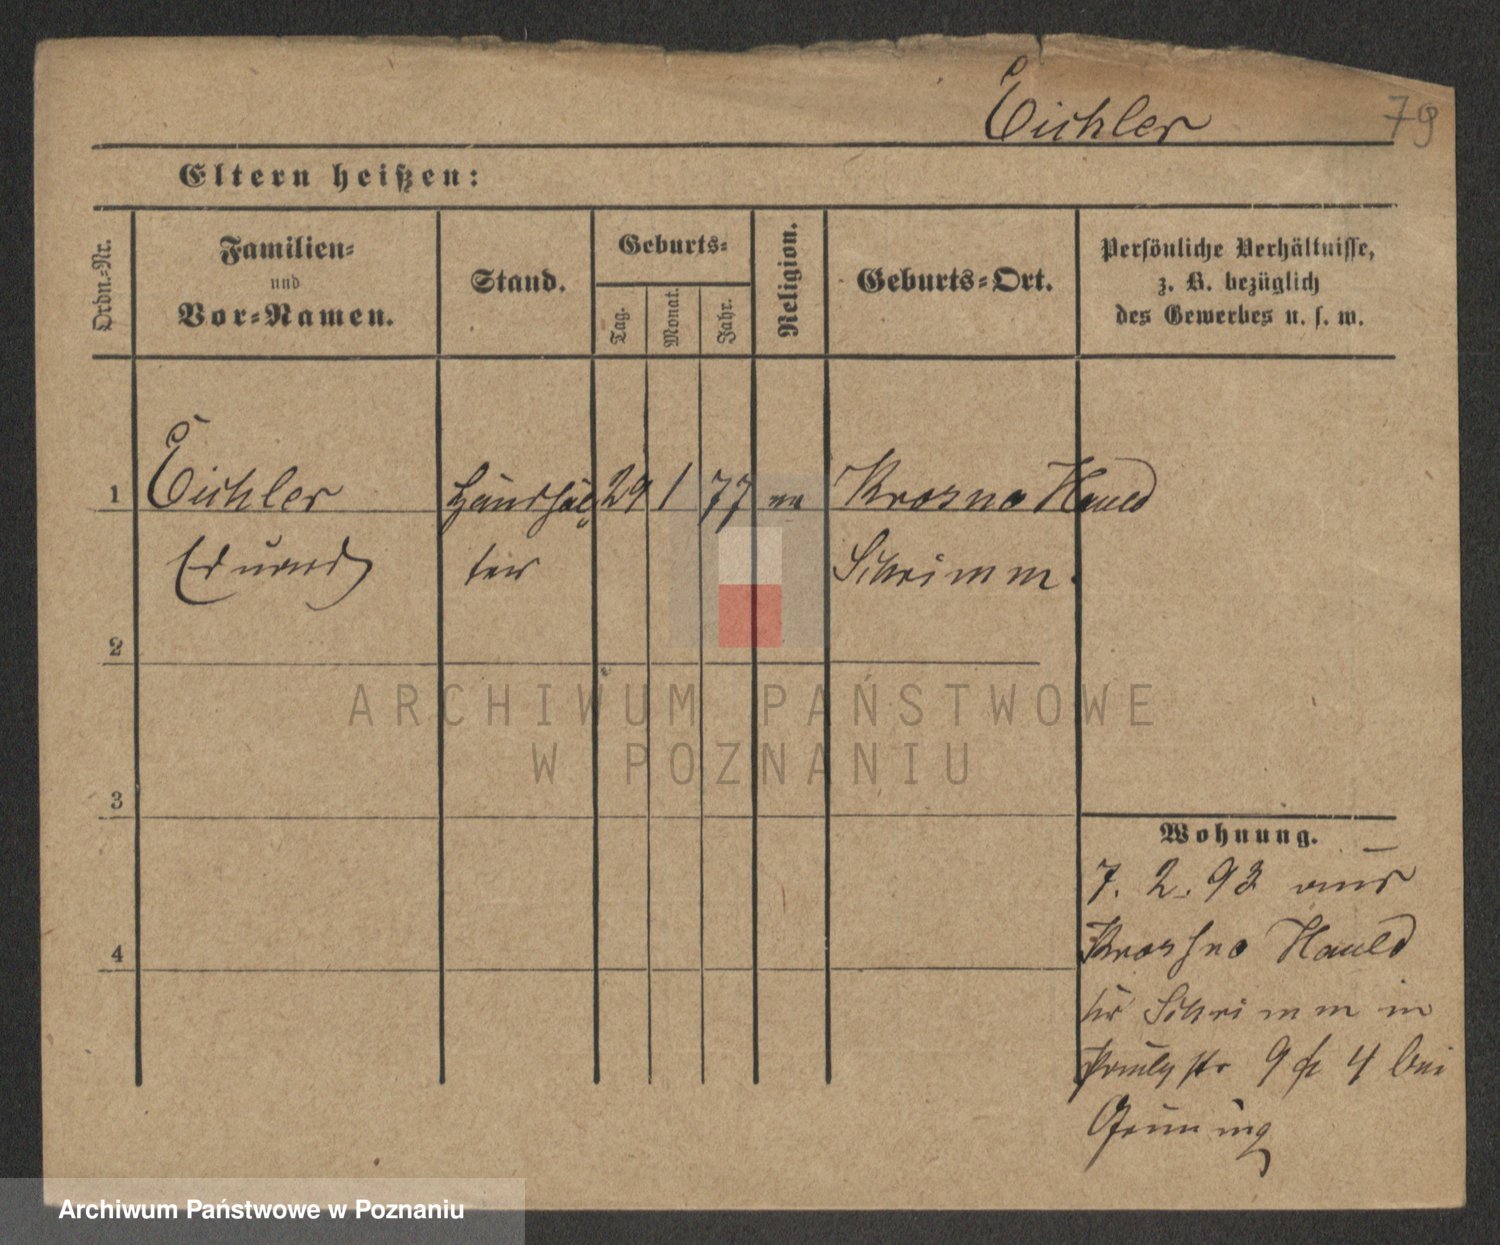 Eichler 79
Eltern heißen:
Ordn.-Nr.
Familien-
und
Vor-Namen.
Stand.
Geburts-
Tag.
Monat.
Jahr.
Religion.
Geburts-Ort.
Persönliche Verhältnisse,
z. B. bezüglich
des Gewerbes u. s. w.
1 Eichler 29 1 77 Krosno Hauld
Eduard Schrimm.
2
3
4
Wohnung.
7. 2. 93 aus
Krosno Hauld
Schrimm in
9 4 bei
ARCHIWUM PAŃSTWOWE
W POZNANIU
Archiwum Państwowe w Poznaniu